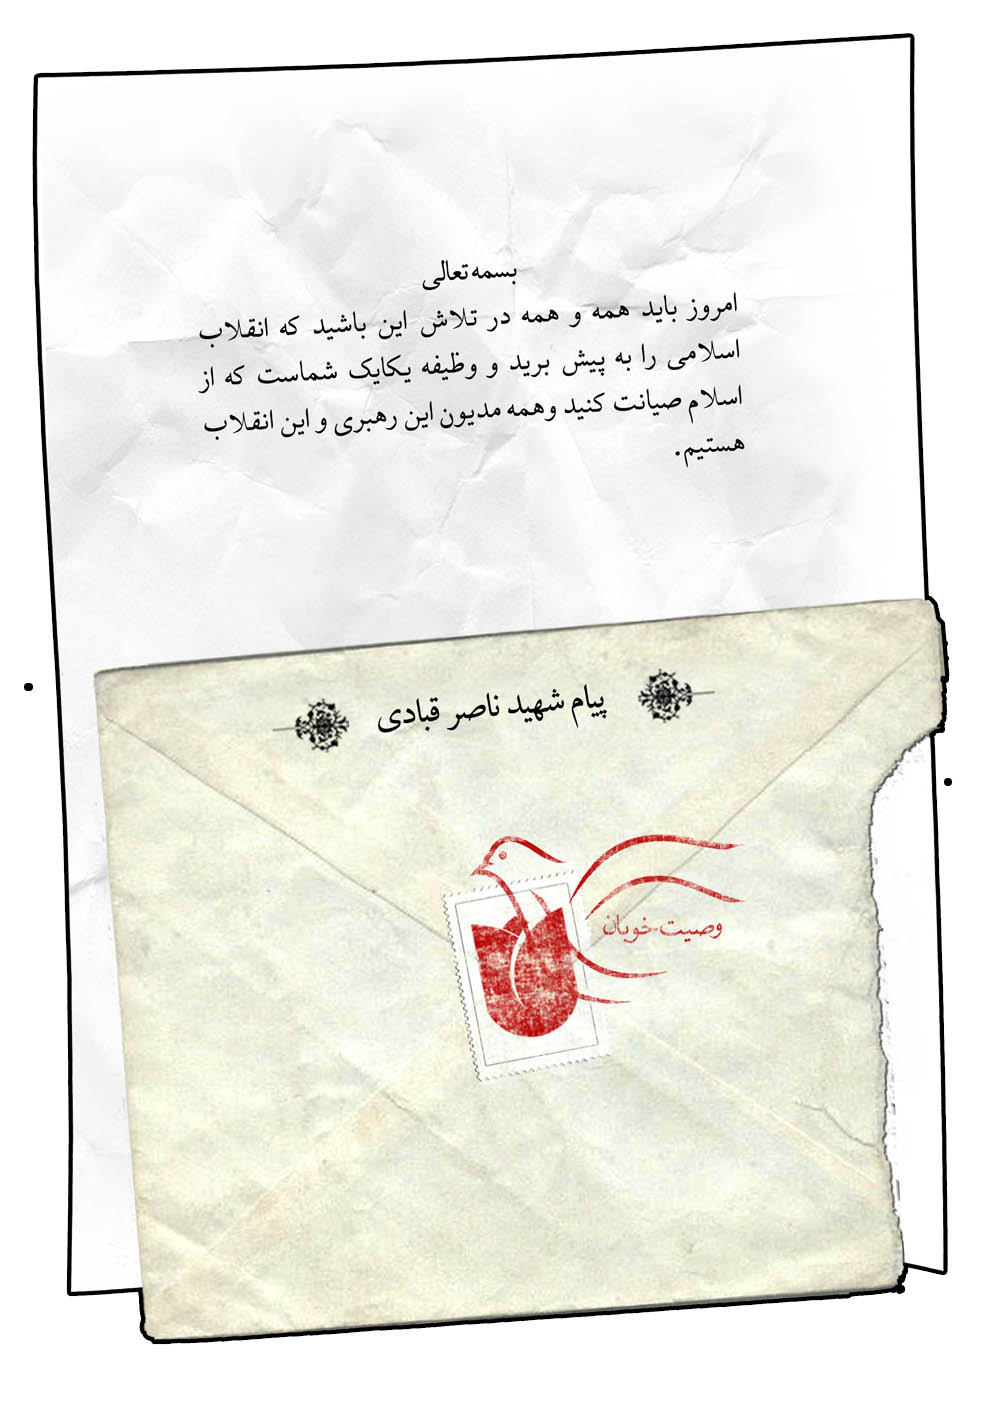 بسمه تعالی
امروز باید همه و همه در تلاش این باشید که انقلاب
اسلامی را به پیش برید و وظیفه یکایک شماست که از
اسلام صیانت کنید وهمه مدیون این رهبری و این انقلاب
هستیم.
پیام شهید ناصر قبادی
وصیت خوبان